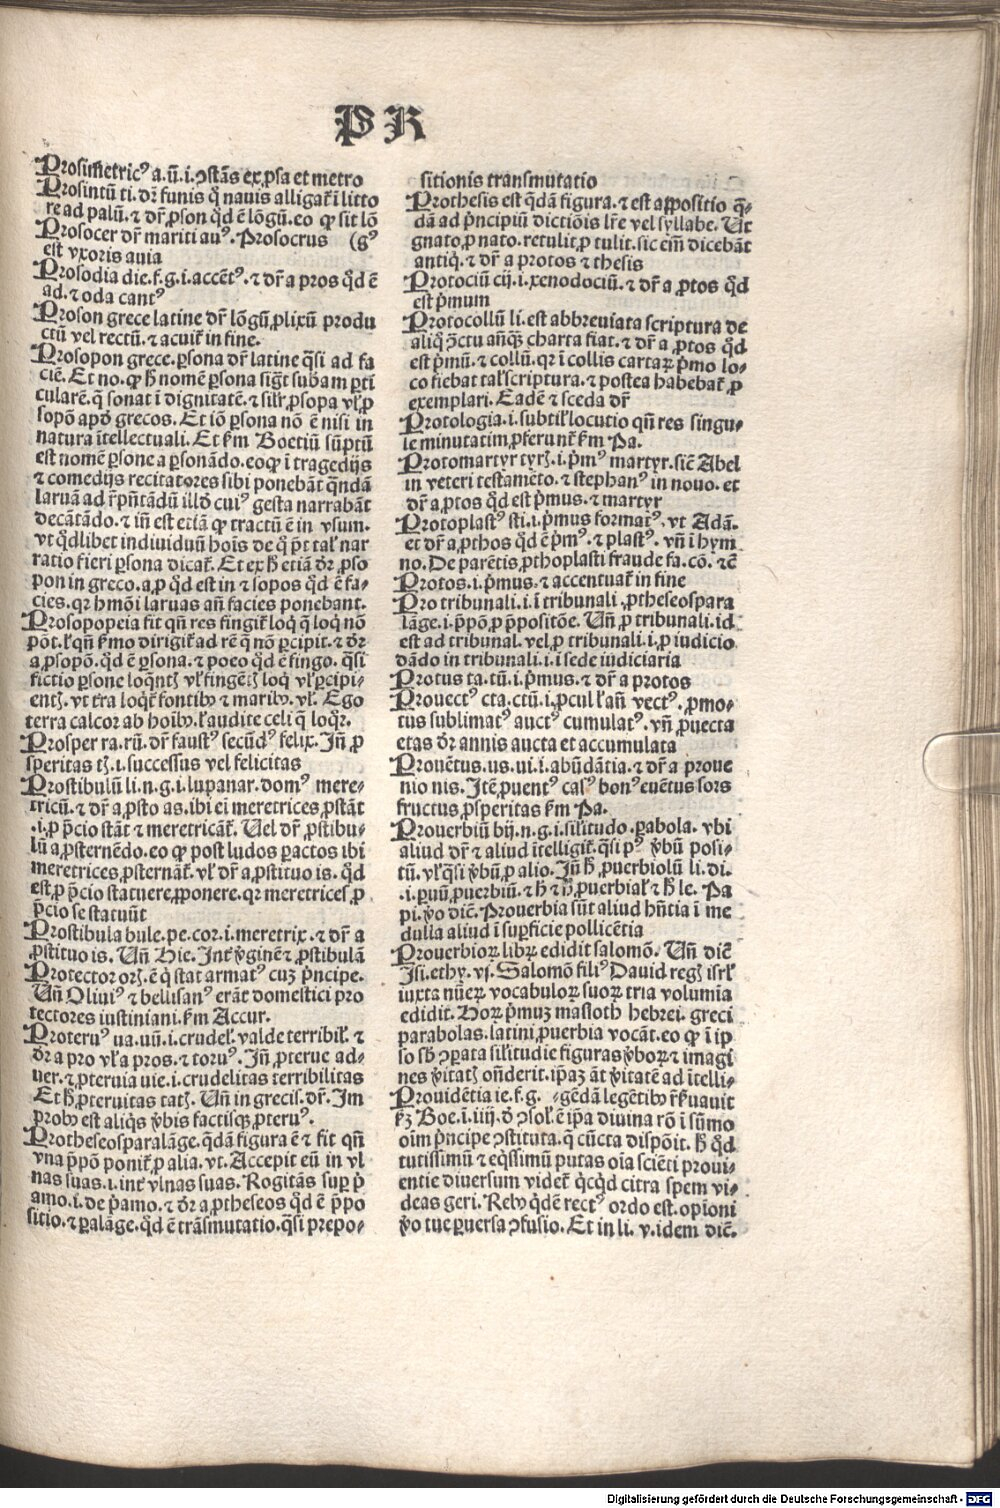 PR
Prosimetricꝰ a.ū.i.ꝯstās ex ꝓsa et metro
Prosintū ti. dr̄ funis q̇ nauis alligat᷑ ī litto
re ad palū. ⁊ dr̄ ꝓson qḋ ē lōgū. eo ꝙ sit lō
Prosocer dr̄ mariti auꝰ. Prosocrus (gꝰ
est vxoris auia
Prosodia die.f.g.i.accētꝰ. ⁊ dr̄ a pros qḋ ē
ad. ⁊ oda cantꝰ
Proson grece latine dr̄ lōgū ꝓlixū produ
ctū vel rectū. ⁊ acuit᷑ in fine.
Prosopon grece. ꝑsona dr̄ latine q̄si ad fa
ciē. Et no. ꝙ h̄ nomē ꝑsona sigt̄ subam ꝑti
cularē. q̄ sonat ī dignitatē. ⁊ silr̄ ꝓsopa vl̓ ꝓ
sopō apḋ grecos. Et iō ꝑsona nō ē nisi in
natura ītellectuali. Et ẜm Boetiū sūptū
est nomē ꝑsone a ꝑsonādo. eoꝙ ī tragedijs
⁊ comedijs recitatores sibi ponebāt q̄ndā
laruā ad rp̄ntādū illḋ cuiꝰ gesta narrabāt
decātādo. ⁊ in̄ est etiā ꝙ tractū ē in vsum.
vt qḋlibet indiuiduū hoīs de q̇ p̄t tal̓ nar
ratio fieri ꝑsona dicat᷑. Et ex h̄ etiā dr̄ ꝓso
pon in greco. a ꝓ qḋ est in ⁊ sopos qḋ ē fa⸗
cies. qr hmōi laruas an̄ facies ponebant.
Prosopopeia fit qn̄ res fingit᷑ loq̇ q̄ loq̇ nō
pōt. l̓ qn̄ ẜmo dirigit᷑ ad rē q̄ nō ꝑcipit. ⁊ dr̄
a ꝓsopō. qḋ ē ꝑsona. ⁊ poeo qḋ ē fingo. q̄si
fictio ꝑsone loq̄ntꝭ vl̓ fingētꝭ loq̇ vl̓ ꝑcipi⸗
entꝭ. vt tr̄a loq̇t᷑ fontibꝰ ⁊ maribꝰ. vl̓. Ego
terra calcor ab hoībꝰ. l̓ audite celi q̄ loq̇r.
Prosper ra.rū. dr̄ faustꝰ secūdꝰ felix. Jn̄ ꝓ
speritas tꝭ.i. successus vel felicitas
Prostibulū li.n.g.i.lupanar. domꝰ mere⸗
tricū. ⁊ dr̄ a ꝓsto as. ibi ei meretrices ꝓstāt
.i.ꝓ p̄cio stāt ⁊ meretricāt᷑. Uel dr̄ ꝓstibu⸗
lū a ꝓsternēdo. eo ꝙ post ludos ꝑactos ibi
meretrices ꝓsternāt᷑. vl̓ dr̄ a ꝓstituo is. qḋ
est ꝓ p̄cio statuere ꝓponere. qr meretrices ꝓ
p̄cio se statuūt
Prostibula bule. pe.cor.i.meretrix. ⁊ dr̄ a
ꝓstituo is. Un̄ Hie. Int̄ v̓ginē ⁊ ꝓstibulā
Protector orꝭ. ē q̇ stat armatꝰ cuꝫ p̓ncipe.
Un̄ Oliuiꝰ ⁊ bellisanꝰ erāt domestici pro
tectores iustiniani. ẜm Accur.
Proteruꝰ ua.uū.i.crudel̓. valde terribil̓. ⁊
dr̄ a pro vl̓ a pros. ⁊ toruꝰ. Jn̄ ꝓterue ad⸗
uer. ⁊ ꝓteruia uie.i.crudelitas terribilitas
Et h̄ ꝓteruitas tatꝭ. Un̄ in grecis. dr̄. Im
probꝰ est aliq̇s v̓bis factisqꝫ ꝓteruꝰ.
Protheseosparalāge. q̄dā figura ē ⁊ fit qn̄
vna p̄pō ponit᷑ ꝓ alia. vt. Accepit eū in vl
nas suas.i.int̄ vlnas suas. Rogitās suꝑ p̓
amo.i.de p̓amo. ⁊ dr̄ a ꝓtheseos qḋ ē p̄po
sitio. ⁊ ꝑalāge. qḋ ē trāsmutatio. q̄si prepo⸗
sitionis transmutatio
Prothesis est q̄dā figura. ⁊ est appositio q̄⸗
dā ad p̓ncipiū dictiōis lr̄e vel syllabe. Ut
gnato ꝓ nato. retulit ꝓ tulit. sic em̄ dicebāt
antiq̇. ⁊ dr̄ a protos ⁊ thesis
Protociū cij.i.xenodociū. ⁊ dr̄ a ꝓtos qḋ
est p̓mum
Protocollū li. est abbreuiata scriptura de
aliq̇ ꝯctu an̄qꝫ charta fiat. ⁊ dr̄ a ꝓtos qḋ
est p̓mū. ⁊ collū. qr ī collis cartaꝝ p̓mo lo⸗
co fiebat tal̓ scriptura. ⁊ postea habebat᷑ ꝓ
exemplari. Eadē ⁊ sceda dr̄
Protologia.i.subtil̓ locutio qn̄ res singu⸗
le minutatim ꝓferunt᷑ ẜm Pa.
Protomartyr tyrꝭ.i.p̓mꝰ martyr. sic̄ Abel
in veteri testamēto. ⁊ stephanꝰ in nouo. et
dr̄ a ꝓtos qḋ est p̓mus. ⁊ martyr
Protoplastꝰ sti.i.p̓mus formatꝰ. vt Adā.
et dr̄ a ꝓthos qḋ ē p̓mꝰ. ⁊ plastꝰ. vn̄ ī hym
no. De parētis ꝓthoplasti fraude fa.cō. ⁊c̄
Protos.i.p̓mus. ⁊ accentuat᷑ in fine
Pro tribunali.i.ī tribunali ꝓtheseospara
lāge.i.p̄pō ꝓ p̄positōe. Un̄ ꝓ tribunali.id
est ad tribunal. vel ꝓ tribunali.i.ꝓ iudicio
dādo in tribunali.i.ī sede iudiciaria
Protus ta.tū.i.p̓mus. ⁊ dr̄ a protos
Prouectꝰ cta.ctū.i.ꝓcul l̓ an̄ vectꝰ. ꝓmo⸗
tus sublimatꝰ auctꝰ cumulatꝰ. vn̄ ꝓuecta
etas dr̄ annis aucta et accumulata
Prouētus.us.ui.i.abūdātia. ⁊ dr̄ a proue
nio nis. Itē ꝓuentꝰ casꝰ bonꝰ euētus sors
fructus ꝓsperitas ẜm Pa.
Prouerbiū bij.n.g.i.silitudo. ꝑabola. vbi
aliud dr̄ ⁊ aliud ītelligit᷑. q̄si pꝰ v̓bū posi⸗
tū. vl̓ q̄si v̓bū ꝓ alio. Jn̄ h̄ ꝓuerbiolū li.di.
.i.ꝑuū ꝓuerbiū. ⁊ h̄ ⁊ h̄ ꝓuerbial̓ ⁊ h̄ le. Pa
pi. v̓o dic̄. Prouerbia sūt aliud hn̄tia ī me
dulla aliud ī suꝑficie pollicētia
Prouerbioꝝ libꝝ edidit salomō. Un̄ dic̄
Isi. ethy. vj. Salomō filiꝰ Dauid regꝭ isrl̓
iuxta nūeꝝ vocabuloꝝ suoꝝ tria volumīa
edidit. Hoꝝ p̓muꝫ masloth hebrei. greci
parabolas. latini ꝓuerbia vocāt. eo ꝙ ī ip
so sb̓ ꝯꝑata silitudie figuras v̓boꝝ ⁊ imagi
nes v̓itatꝭ on̄derit. ip̄aꝫ āt v̓itatē ad ītelli⸗
Prouidētia ie.f.g. ⸗gēdā legētibꝰ r̄ẜuauit
ẜꝫ Boe.ī.iiij.ḋ ꝯsol̓. ē ip̄a diuina rō ī sūmo
oīm p̓ncipe ꝯstituta. q̄ cūcta dispōit. h̄ qḋ
tutissimū ⁊ eq̇ssimū putas oīa sciēti proui⸗
entie diuersum videt᷑ q̇cqḋ citra spem vi⸗
deas geri. Rebꝰ qḋē rectꝰ ordo est. opīoni
v̓o tue ꝑuersa ꝯfusio. Et in li. v. idem dic̄.
Digitalisierung gefördert durch die Deutsche Forschungsgemeinschaft - DFG